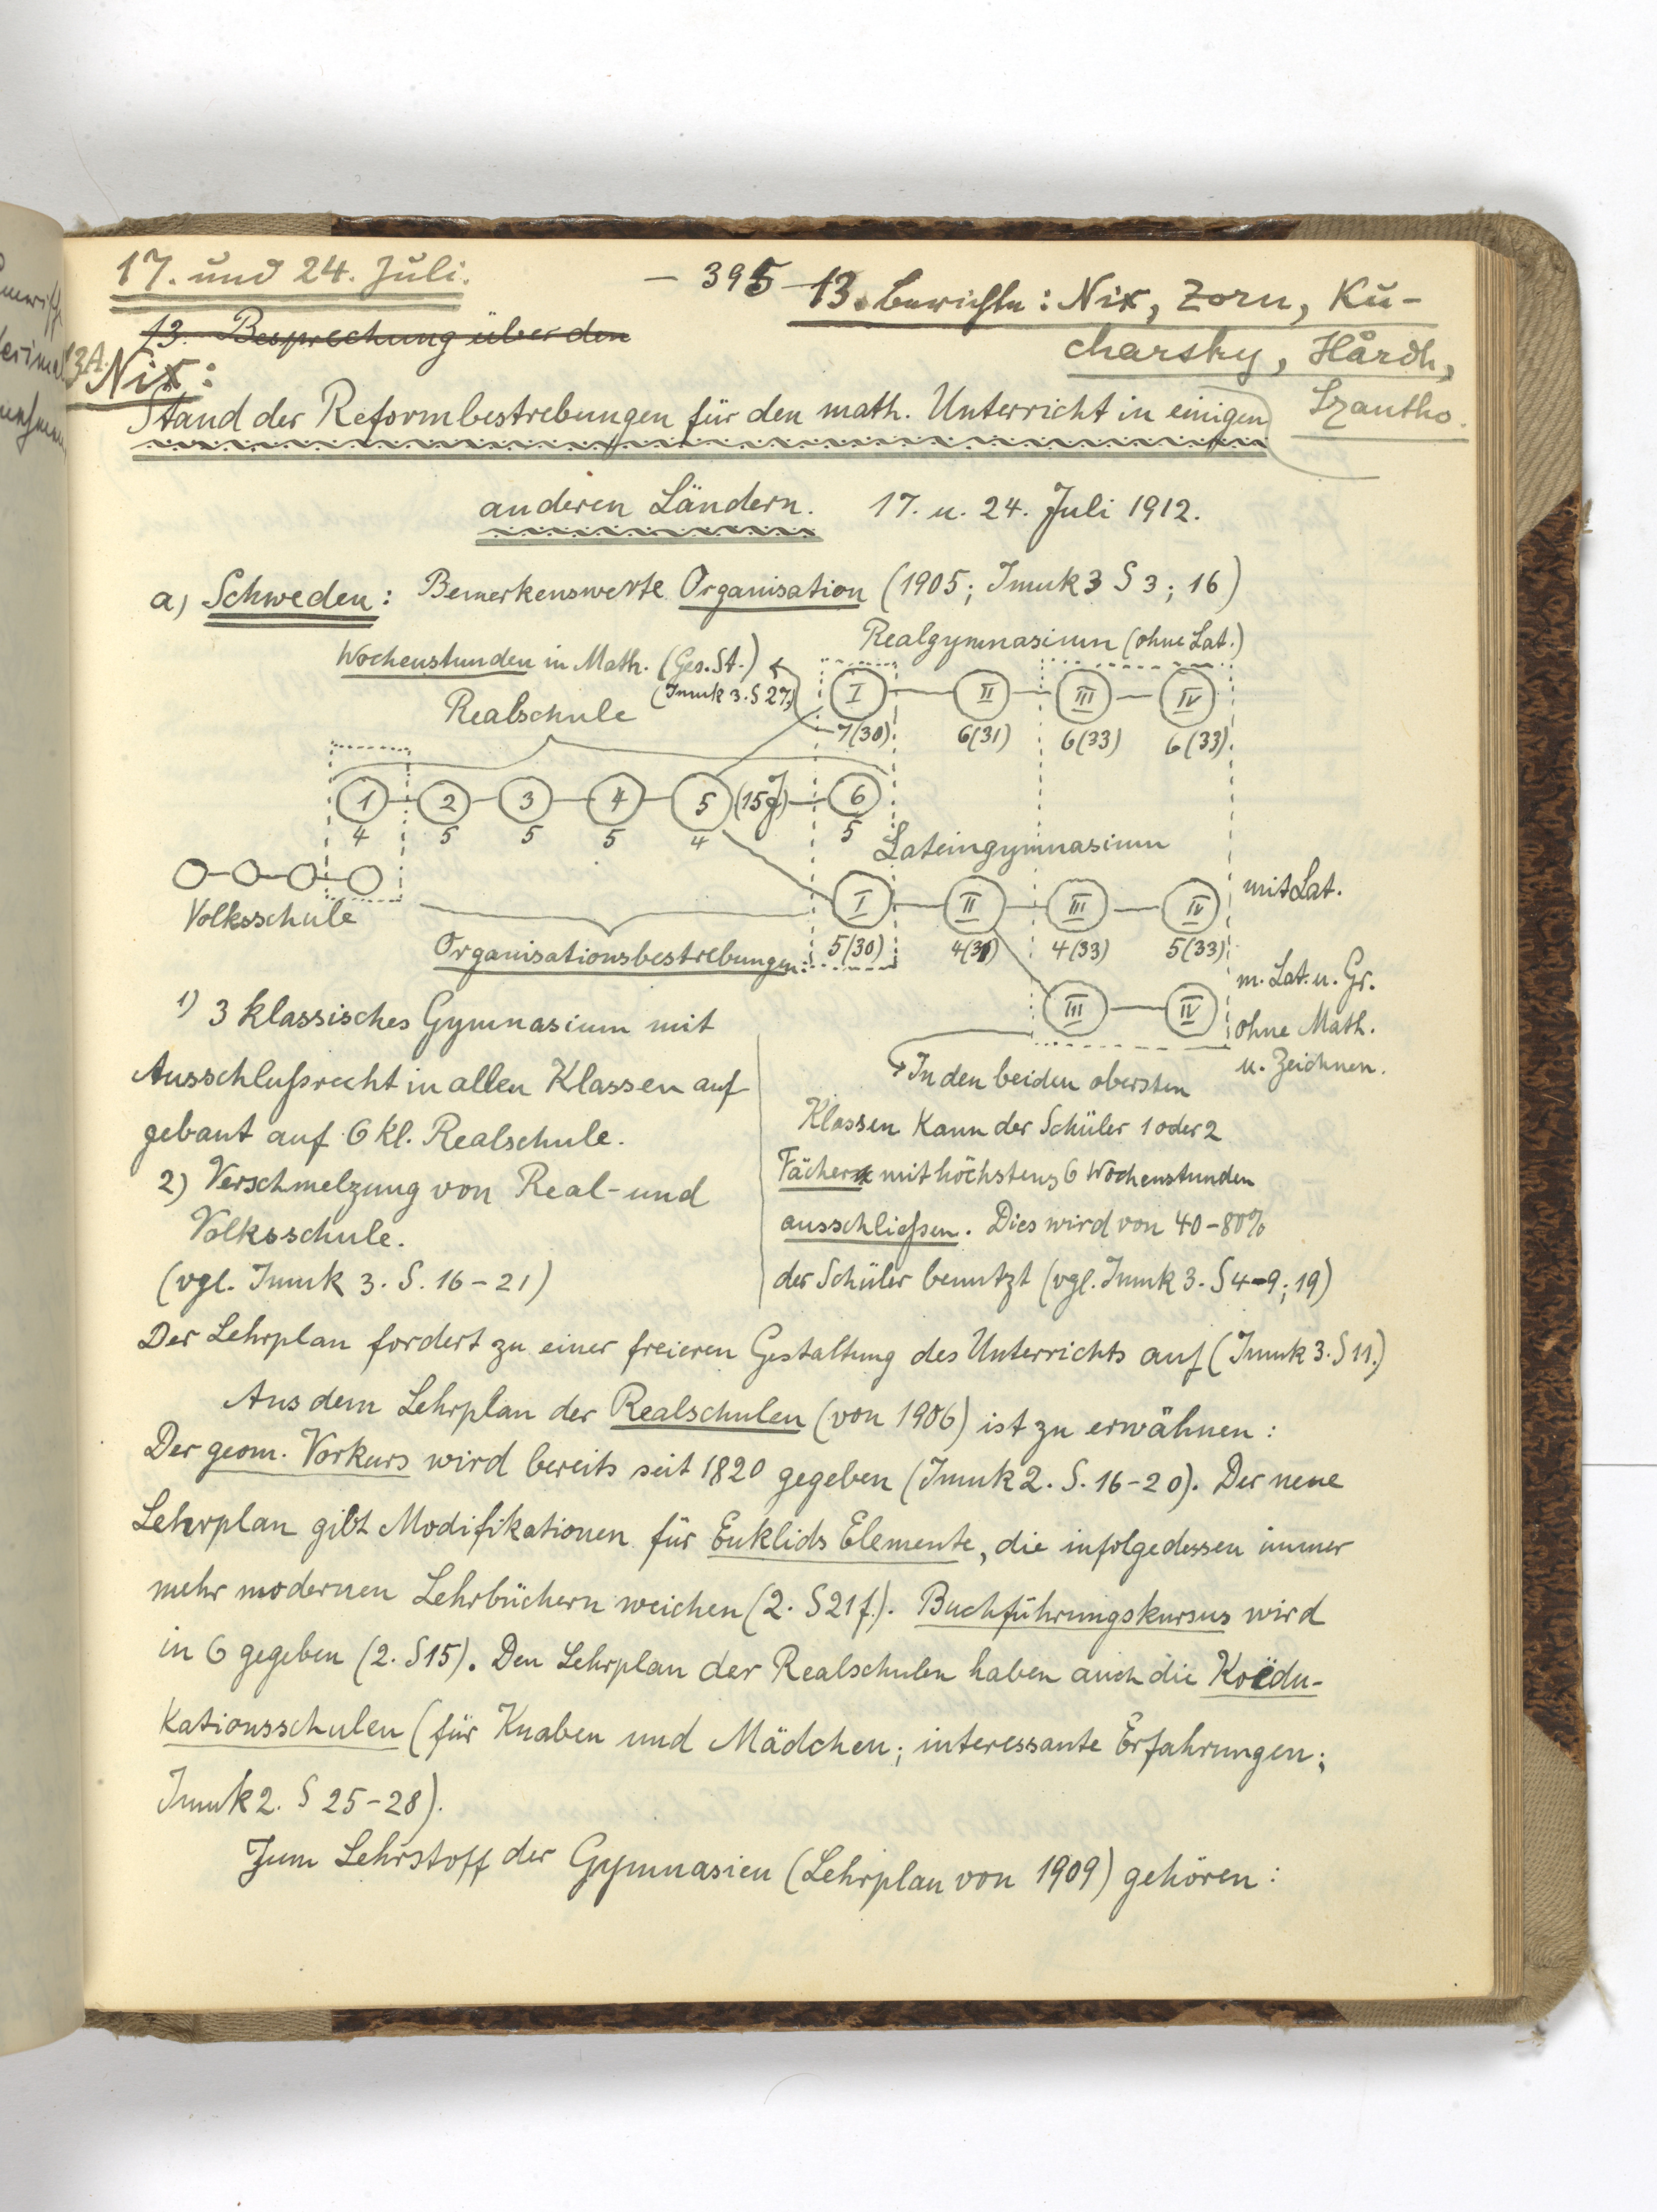 17. und 24. Juli.
– 395 –
13. Berichte: Nix, Zorn, Ku-
charsky, Hårdh,
Szantho.
13. Besprechung über den
13A. Nix:
Stand der Reformbestrebungen für den math. Unterricht in einigen
anderen Ländern. 17. u. 24. Juli 1912.
a) Schweden: Bemerkenswerte Organisation (1905; Imuk 3 S 3; 16)
Realgymnasium (ohne Lat.)
Wochenstunden in Math. (Ges. St.)
(Imuk 3. S 27)
I II III IV
7(30) 6(31) 6(33) 6(33)
Realschule
1 2 3 4 5 (15J) 6
4 5 5 5 4 5
Lateingymnasium
Volksschule
I II III IV mit Lat.
5(30) 4(31) 4(33) 5(33)
III IV
m. Lat. u. Gr.
ohne Math.
u. Zeichnen.
Organisationsbestrebungen:
1) 3 klassisches Gymnasium mit
Ausschlußrecht in allen Klassen auf
gebaut auf 6 kl. Realschule.
2) Verschmelzung von Real- und
Volksschule.
(vgl. Imuk 3. S. 16–21)
In den beiden obersten
Klassen kann der Schüler 1 oder 2
Fächer mit höchstens 6 Wochenstunden
ausschließen. Dies wird von 40–80%
der Schüler benutzt (vgl. Imuk 3. S 4–9; 19)
Der Lehrplan fordert zu einer freieren Gestaltung des Unterrichts auf (Imuk 3. S 11.)
Aus dem Lehrplan der Realschulen (von 1906) ist zu erwähnen:
Der geom. Vorkurs wird bereits seit 1820 gegeben (Imuk 2. S. 16–20). Der neue
Lehrplan gibt Modifikationen für Euklids Elemente, die infolgedessen immer
mehr modernen Lehrbüchern weichen (2. S 21 f.). Buchführungskursus wird
in 6 gegeben (2. S 15). Den Lehrplan der Realschulen haben auch die Koëdu-
kationsschulen (für Knaben und Mädchen; interessante Erfahrungen;
Imuk 2. S 25–28).
Zum Lehrstoff der Gymnasien (Lehrplan von 1909) gehören: